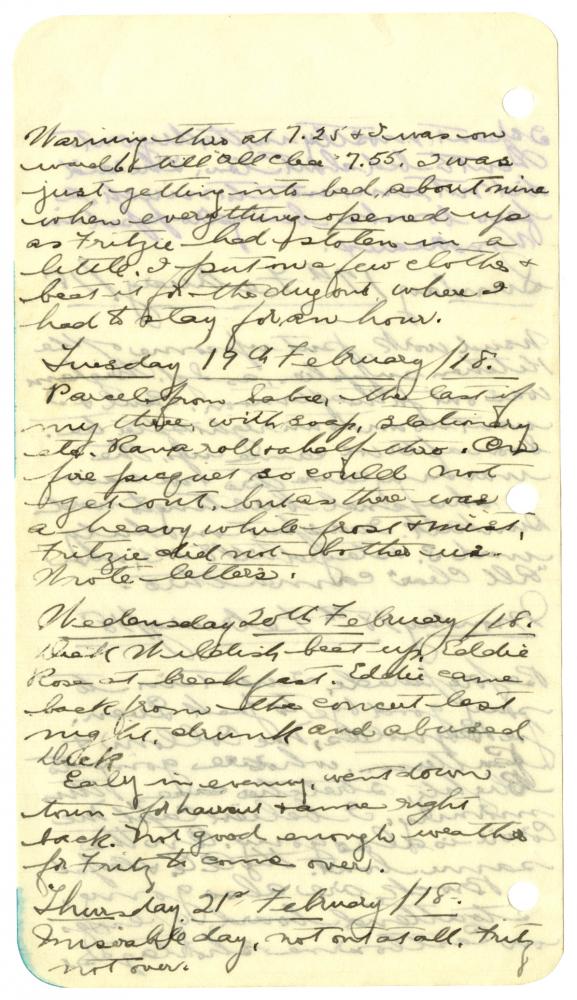 Warning thro at 7.25 & I was on
wards till "All clear" 7.55. I was
just getting into bed, about nine
when everything opened up
as Fritzie had stolen in a
little. I put on a few clothes &
beat it for the dugout, where I
had to stay for an hour.
Tuesday 19th February/18.
Parcel from Sabe, the last of
my three, with soap, stationary
etc. Ran a roll & a half thro. On
fire picquet so could not
get out, but as there was
a heavy white frost & mist,
Fritzie did not bother us.
Wrote letters.
Wednesday 20th February/18.
Dick Wildish beat up Eddie
Rose at breakfast. Eddie came
back from the concert last
night, drunk, and abused
Dick
Early in evening, went down
town for haircut & came right
back. Not good enough weather
for Fritz to come over.
Thursday 21st February/18.
Miserable day, not out at all. Fritz
not over.